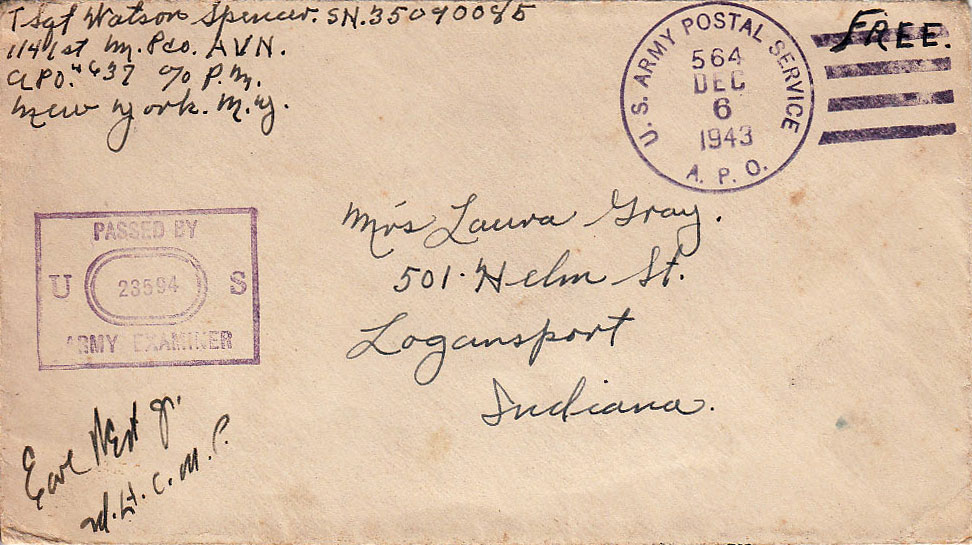 T Sgt Watson Spencer. SN.35090085
1141st M. Pco. AVN.
APO. #637 c/o P.M.
New York. N.Y.
FREE.
U.S. ARMY POSTAL SERVICE
564
DEC
6
1943
A. P. O.
Mrs Laura Gray.
501. Helm St.
Logansport
Indiana.
PASSED BY
U 23594 S
ARMY EXAMINER
Earl West Jr.
C. M. P.